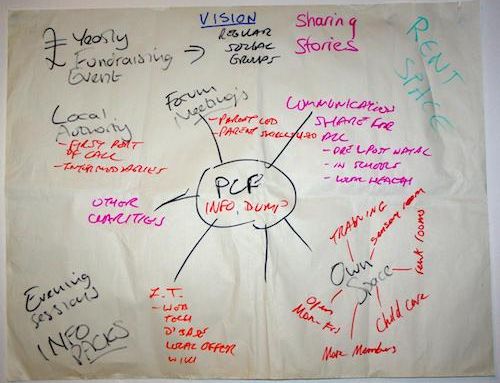 £ Yearly
Fundraising
Event
VISION
REGULAR
SOCIAL
GROUPS
Sharing
Stories
RENT
SPACE
Local
Authority
- FIRST PORT
OF CALL
- INTERMEDIARIES
Forum
Meetings
- PARENT LED
- PARENT
COMMUNICATION
SHARE FOR
ALL
- PRE/POST NATAL
- IN SCHOOLS
- LOCAL HEALTH
PCF
INFO, DUMP
OTHER
CHARITIES
TRAINING
sensory room
rent rooms
Own
Space
Open
Mon-Fri
Child Care
More Members
Evening
Sessions
INFO
PACKS
I.T.
- WEB
TECH
D'BASE
LOCAL OFFER
WIKI